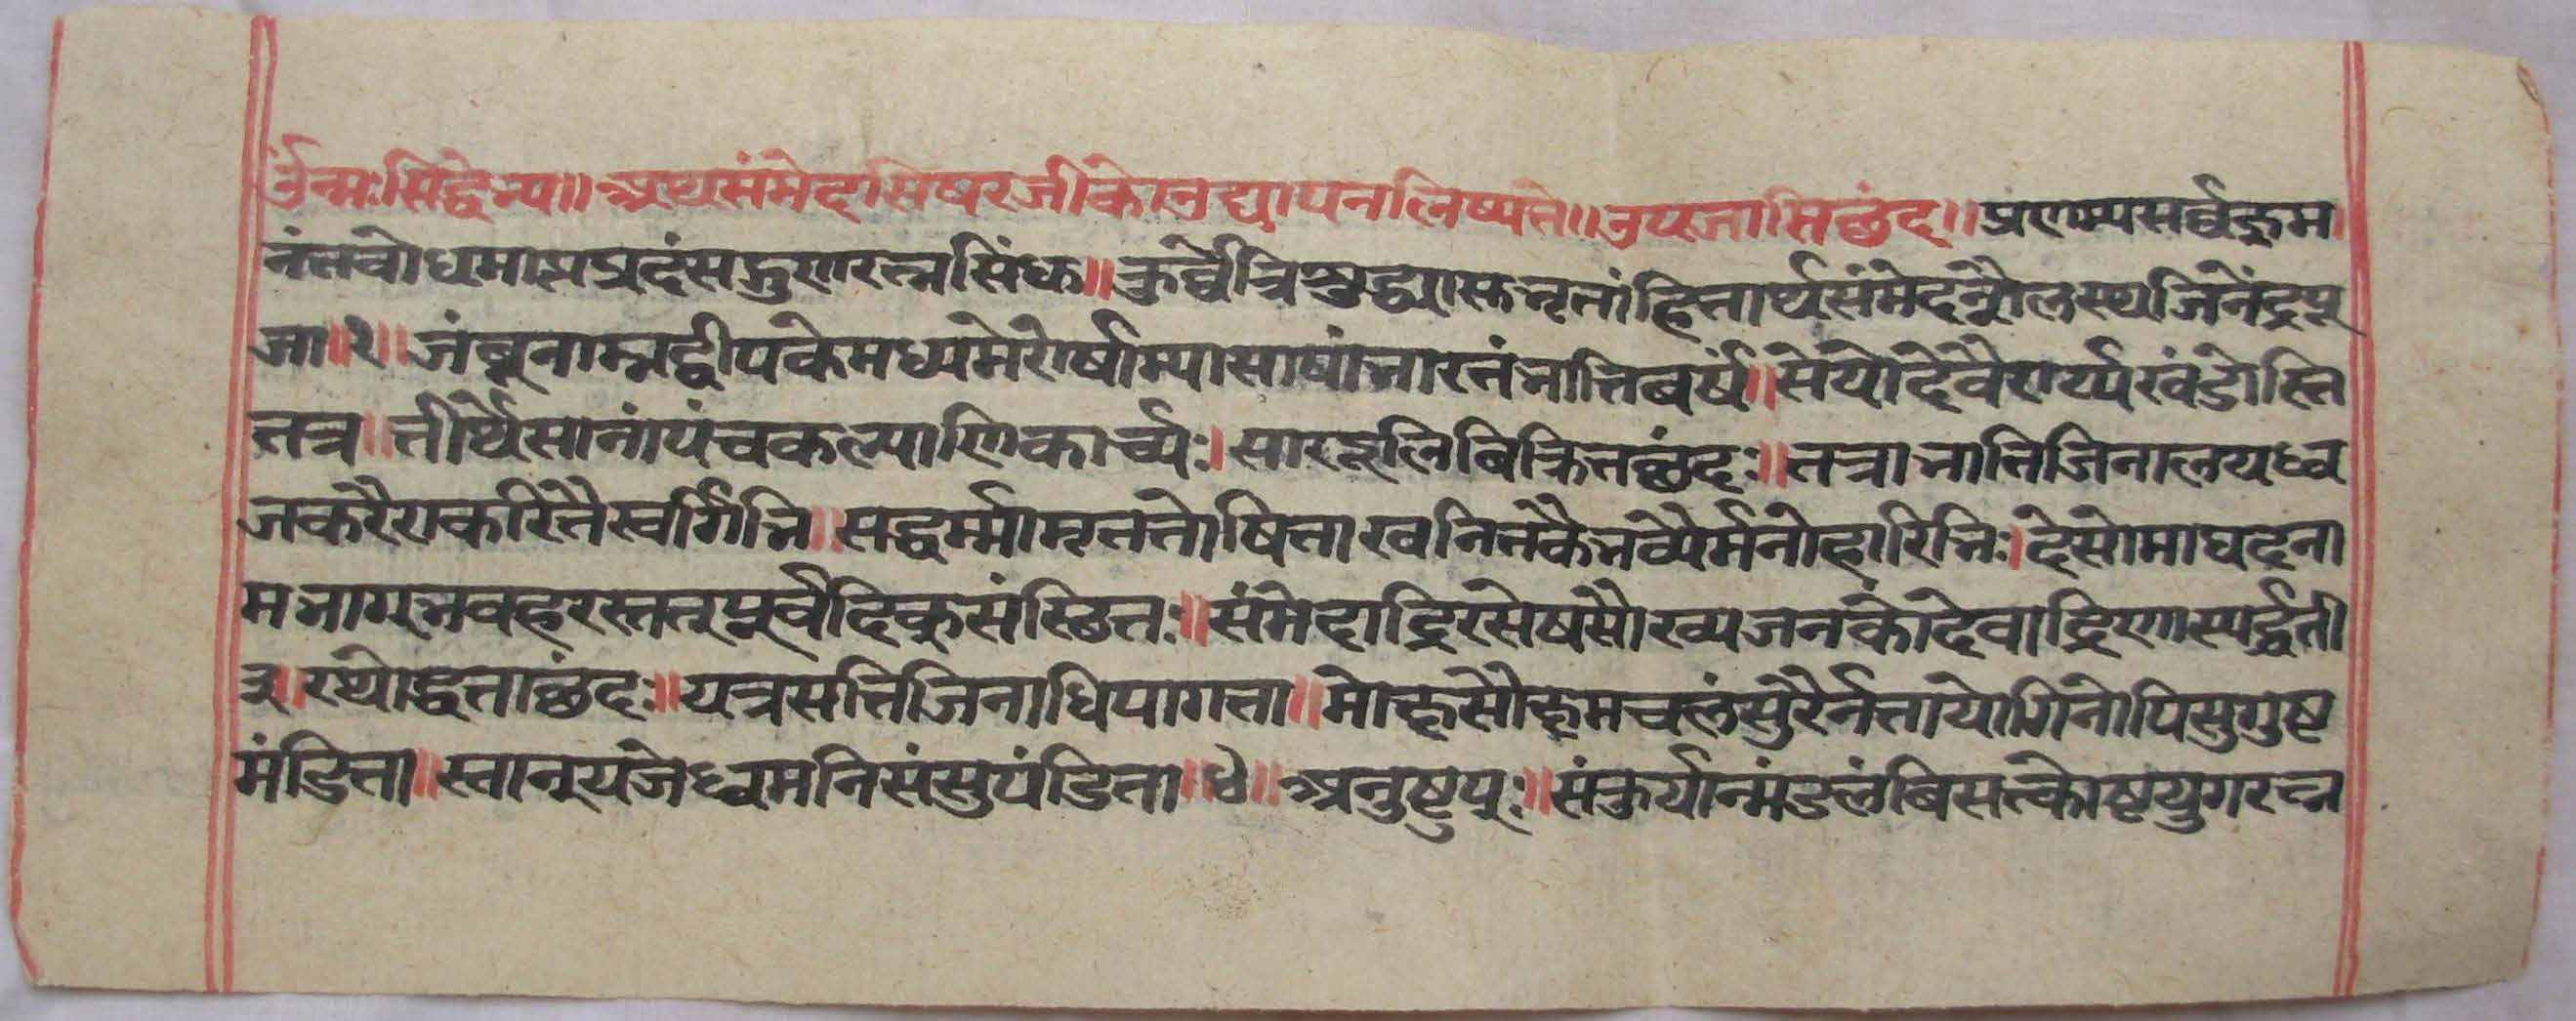 उँन्मःसिद्धेभ्य॥ अथसंमेदसिषरजीकोउद्यापनलिष्यते॥ उपजातिछंद॥ प्रंणम्यसर्व्वज्ञम
नंतवोधमाप्तप्रदंसद्गुणरत्नसिंधु॥ कुर्व्वेत्रिशुद्ध्यास्तनृतांहितार्थसंमेदशैलस्यजिनेंद्रपू
जा॥१॥ जंबूनाम्नद्वीपकेमध्यमेरोर्षाम्यासाषांभारतंभातिबर्षं॥ सेयोदेवैरार्य्यखंडोस्ति
तत्र॥ तीर्थेसानांपंचकल्याणिकार्च्यः। सारदूलिबिक्रितछंदः॥ तत्राभातिजिनालयध्व
जकरैराकारितैस्वर्गिभि॥ सद्धर्म्मामृततोषिताखनितकैभव्यैर्मनोहारिभिः। देसोमाघदना
मभाग्भवहरस्तत्पूर्वदिक्संस्ठितः॥ संमेदाद्रिरसेषसौख्यजनकोदेवाद्रिणास्पर्द्धती
३। रथोद्धताछंदः॥ यत्रसत्तिजिनाधिपागता॥ मोक्षसौक्षमचलंसुरैर्नतायोगिनोपिसुगुष्ट
मंडिता॥ स्तान्यजेध्वमनिसंसुपंडिता॥४॥ अनुष्टुप्ः॥ संकुर्यान्मंडलंबिसत्कोष्टयुगरत्न